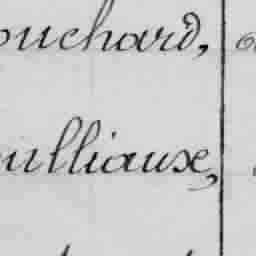 ouchard,
ulliaux,